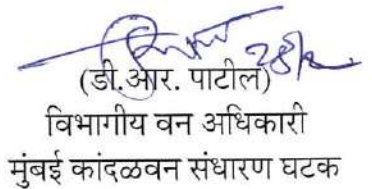 (डी.आर. पाटील)
विभागीय वन अधिकारी
मुंबई कांदळवन संधारण घटक